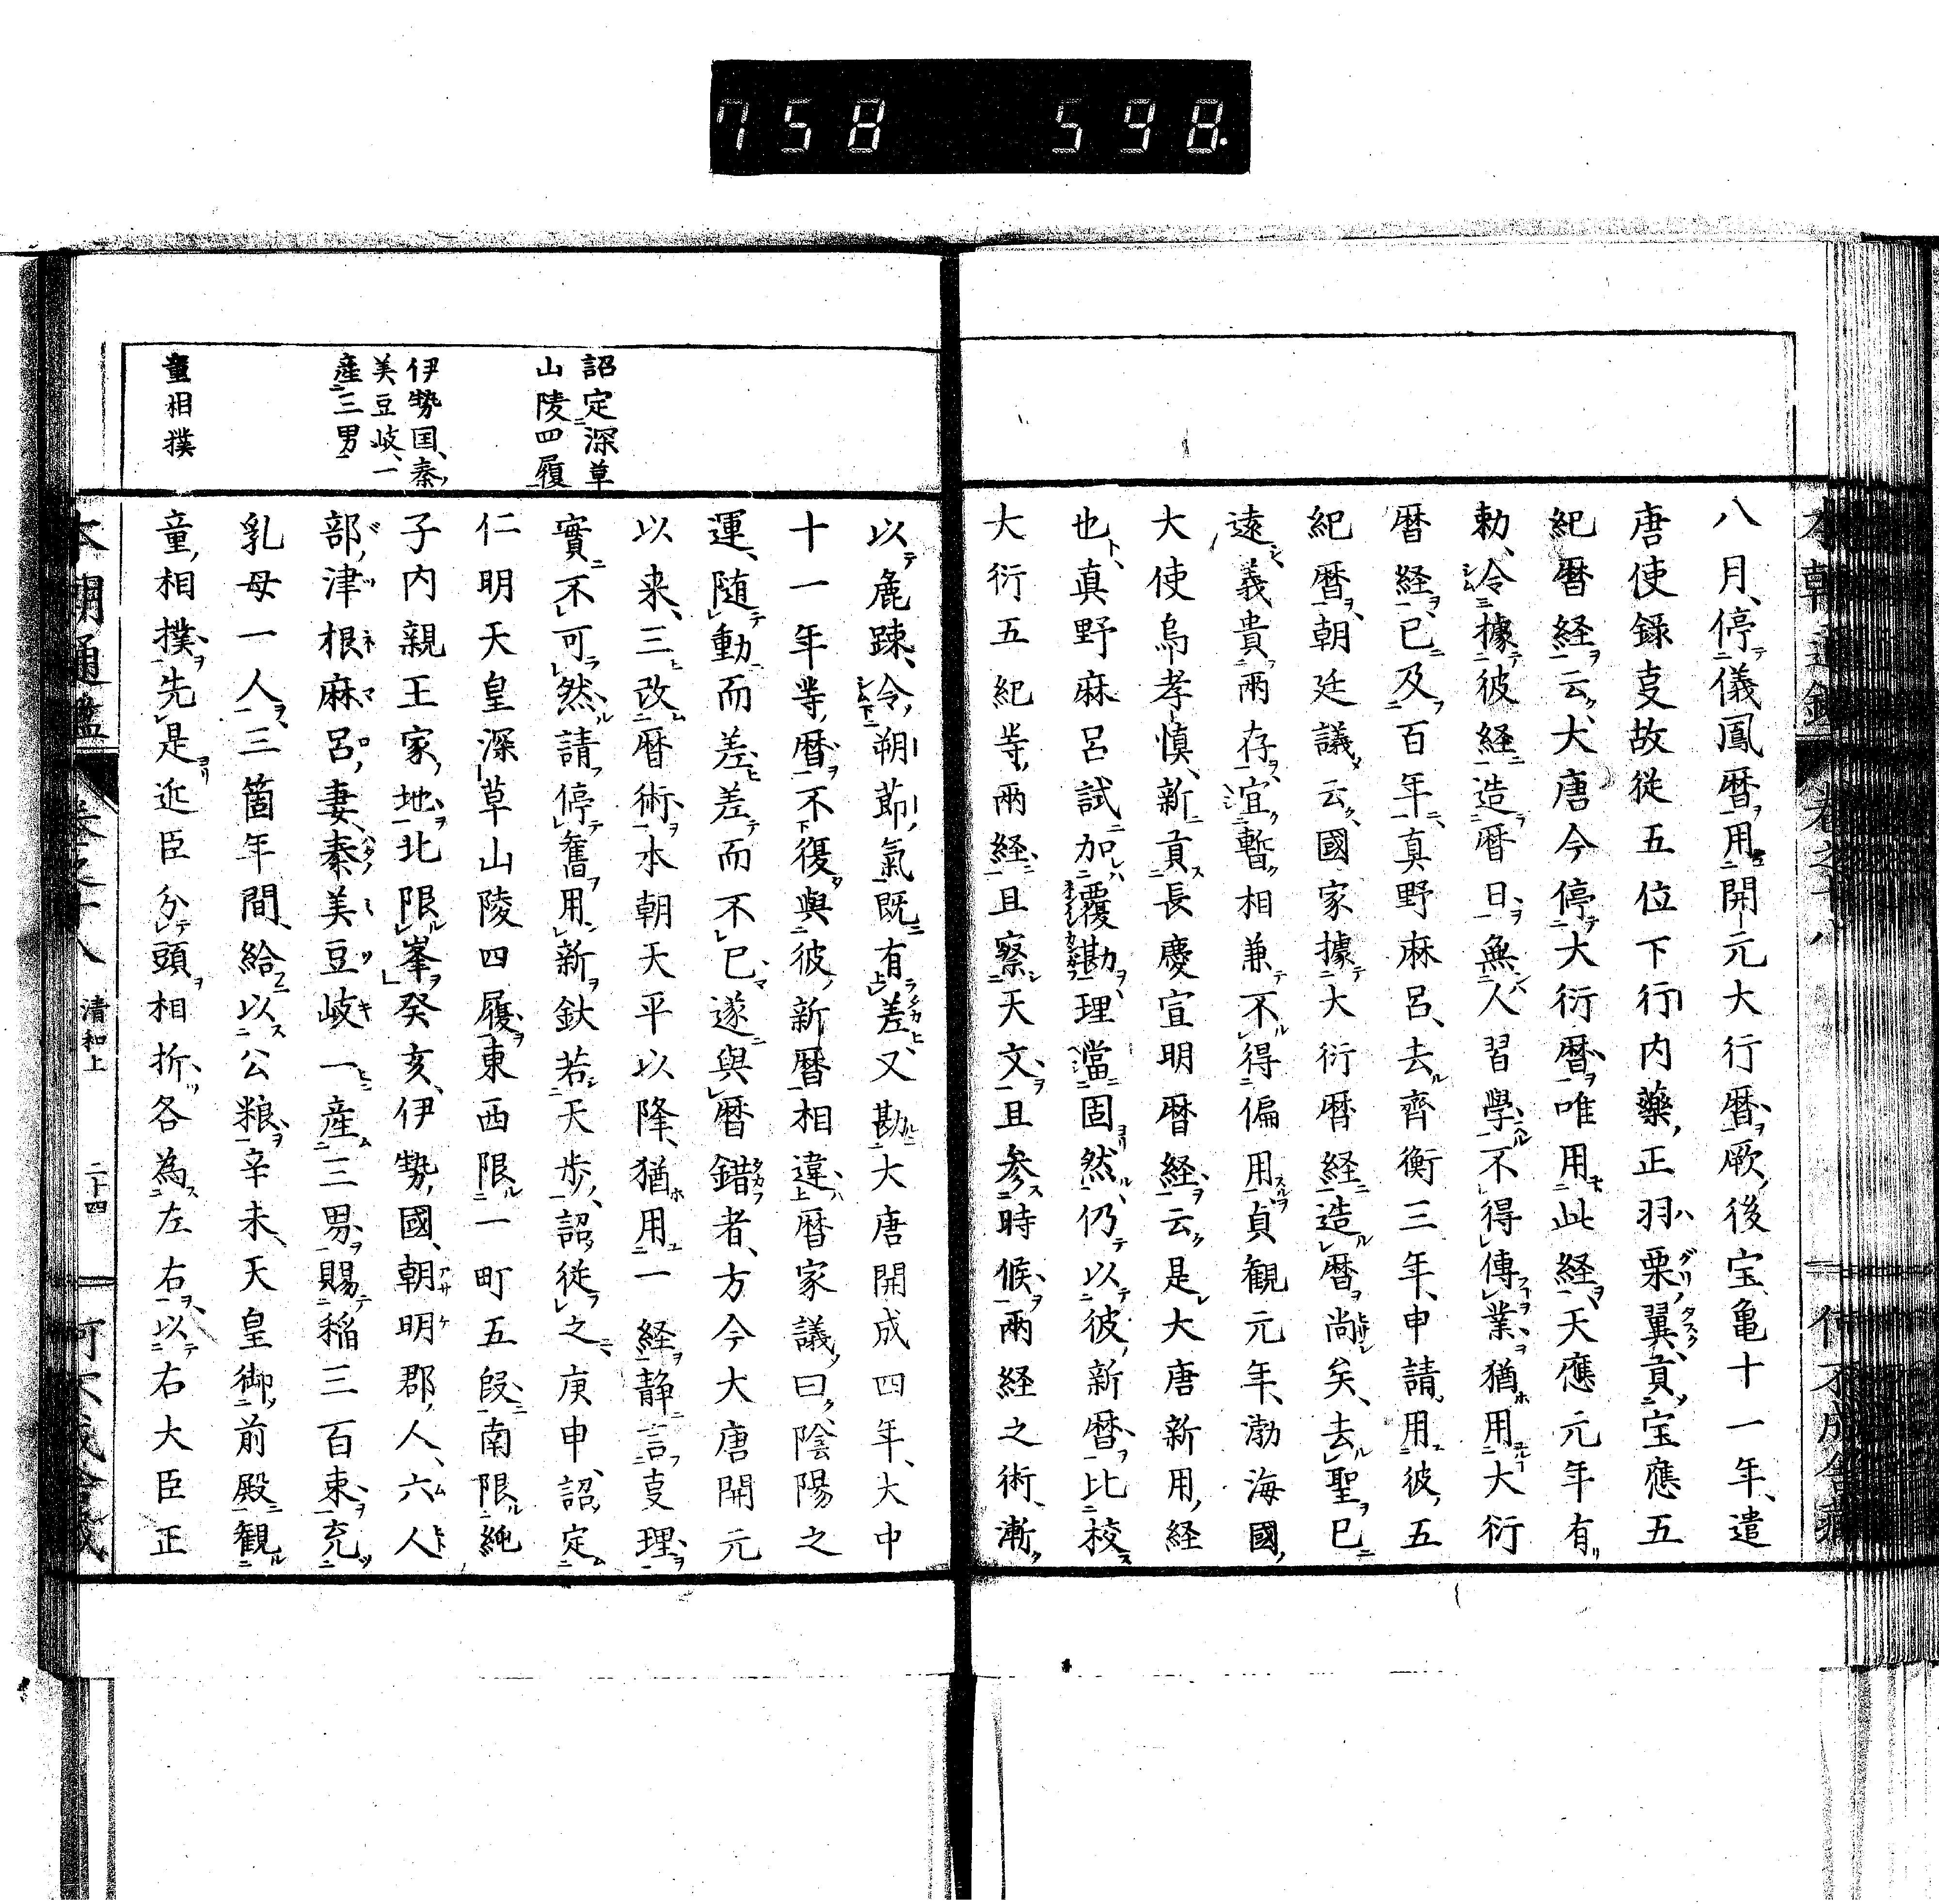 758 598.
八月、停儀鳳暦用開元大行暦厥後宝亀十一年、遣
唐使録㕝故従五位下行内藥正羽栗翼貢宝應五
紀暦経云、大唐今停大衍暦唯用此経、天應元年有
勅、令據彼経造暦日無人習學不得傳業猶用大衍
暦経、已及百年、真野麻呂、去齊衡三年、申請用彼五
紀暦、朝廷議云、國家據大衍暦経造暦尚矣、去聖已
遠、義貴兩存、宜暫相兼不得偏用貞観元年、渤海國
大使烏孝慎、新貢長慶宣明暦経云、是大唐新用経
也、真野麻呂試加覆勘、理當固然、仍以彼新暦比校
大衍五紀等兩経且察天文且参時候兩経之術、漸
詔定深草
山陵四履
伊勢国、秦
美豆岐、一
産三男
童相撲
以麁踈、令朔節氣既有差又勘大唐開成四年、大中
十一年等暦不復與彼新暦相違暦家議曰、陰陽之
運、随動而差差而不已遂與暦錯者、方今大唐開元
以来、三改暦術本朝天平以降、猶用一経静言㕝理
實不可然請停舊用新欽若天歩、詔従之庚申、詔定
仁明天皇深草山陵四履東西限一町五段南限純
子内親王家地北限峯癸亥、伊勢國、朝明郡人、六人
部津根麻呂妻秦美豆岐一産三男賜稲三百束充
乳母一人三箇年間、給以公粮辛未、天皇御前殿観
童相撲先是近臣分頭相折、各為左右以右大臣正
本朝通鑑 卷之十八 清和上 二十四